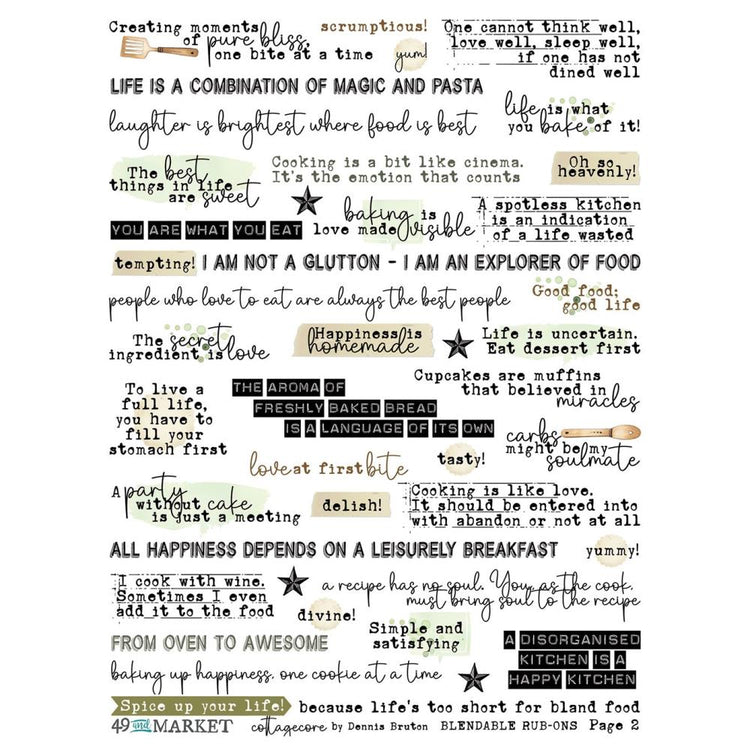 Creating moments
of pure bliss,
one bite at a time
scrumptious!
yum!
One cannot think well,
love well, sleep well,
if one has not
dined well
LIFE IS A COMBINATION OF MAGIC AND PASTA
laughter is brightest where food is best
life is what
you bake of it!
The best
things in life
are sweet
Cooking is a bit like cinema.
It's the emotion that counts
Oh so
heavenly!
YOU ARE WHAT YOU EAT
baking is
love made visible
A spotless kitchen
is an indication
of a life wasted
tempting!
I AM NOT A GLUTTON - I AM AN EXPLORER OF FOOD
people who love to eat are always the best people
Good food;
good life
The secret
ingredient is love
Happiness is
homemade
Life is uncertain.
Eat dessert first
To live a
full life,
you have to
fill your
stomach first
THE AROMA OF
FRESHLY BAKED BREAD
IS A LANGUAGE OF ITS OWN
Cupcakes are muffins
that believed in
miracles
carbs
might be my
soulmate
love at first bite
tasty!
A party
without cake
is just a meeting
delish!
Cooking is like love.
It should be entered into
with abandon or not at all
ALL HAPPINESS DEPENDS ON A LEISURELY BREAKFAST
yummy!
I cook with wine.
Sometimes I even
add it to the food
divine!
a recipe has no soul. You, as the cook,
must bring soul to the recipe
Simple and
satisfying
FROM OVEN TO AWESOME
A DISORGANISED
KITCHEN IS A
HAPPY KITCHEN
baking up happiness, one cookie at a time
Spice up your life!
because life's too short for bland food
49 and MARKET
cottagecore by Dennis Bruton BLENDABLE RUB-ONS Page 2